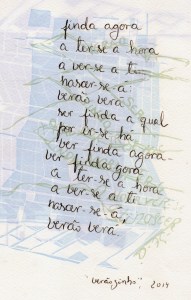 finda agora
a ter-se a hora
a ver-se a ti
nascer-se-á
verão verá
ser finda a qual
por ir-se há
ver finda agora
ver finda gora
a ter-se a hora
a ver-se a ti
nascer-se-á,
verão verá
"verãozinho" 2014